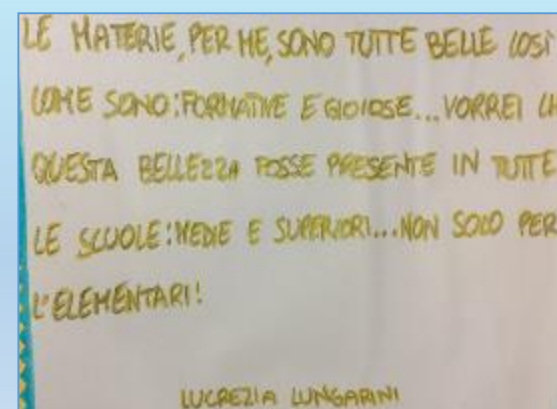 LE MATERIE, PER ME, SONO TUTTE BELLE COSÌ
COME SONO: FORMATIVE E GIOIOSE... VORREI
QUESTA BELLEZZA FOSSE PRESENTE IN TUTTE
LE SCUOLE: MEDIE E SUPERIORI... NON SOLO PER
L'ELEMENTARI!
LUCREZIA LUNGARINI